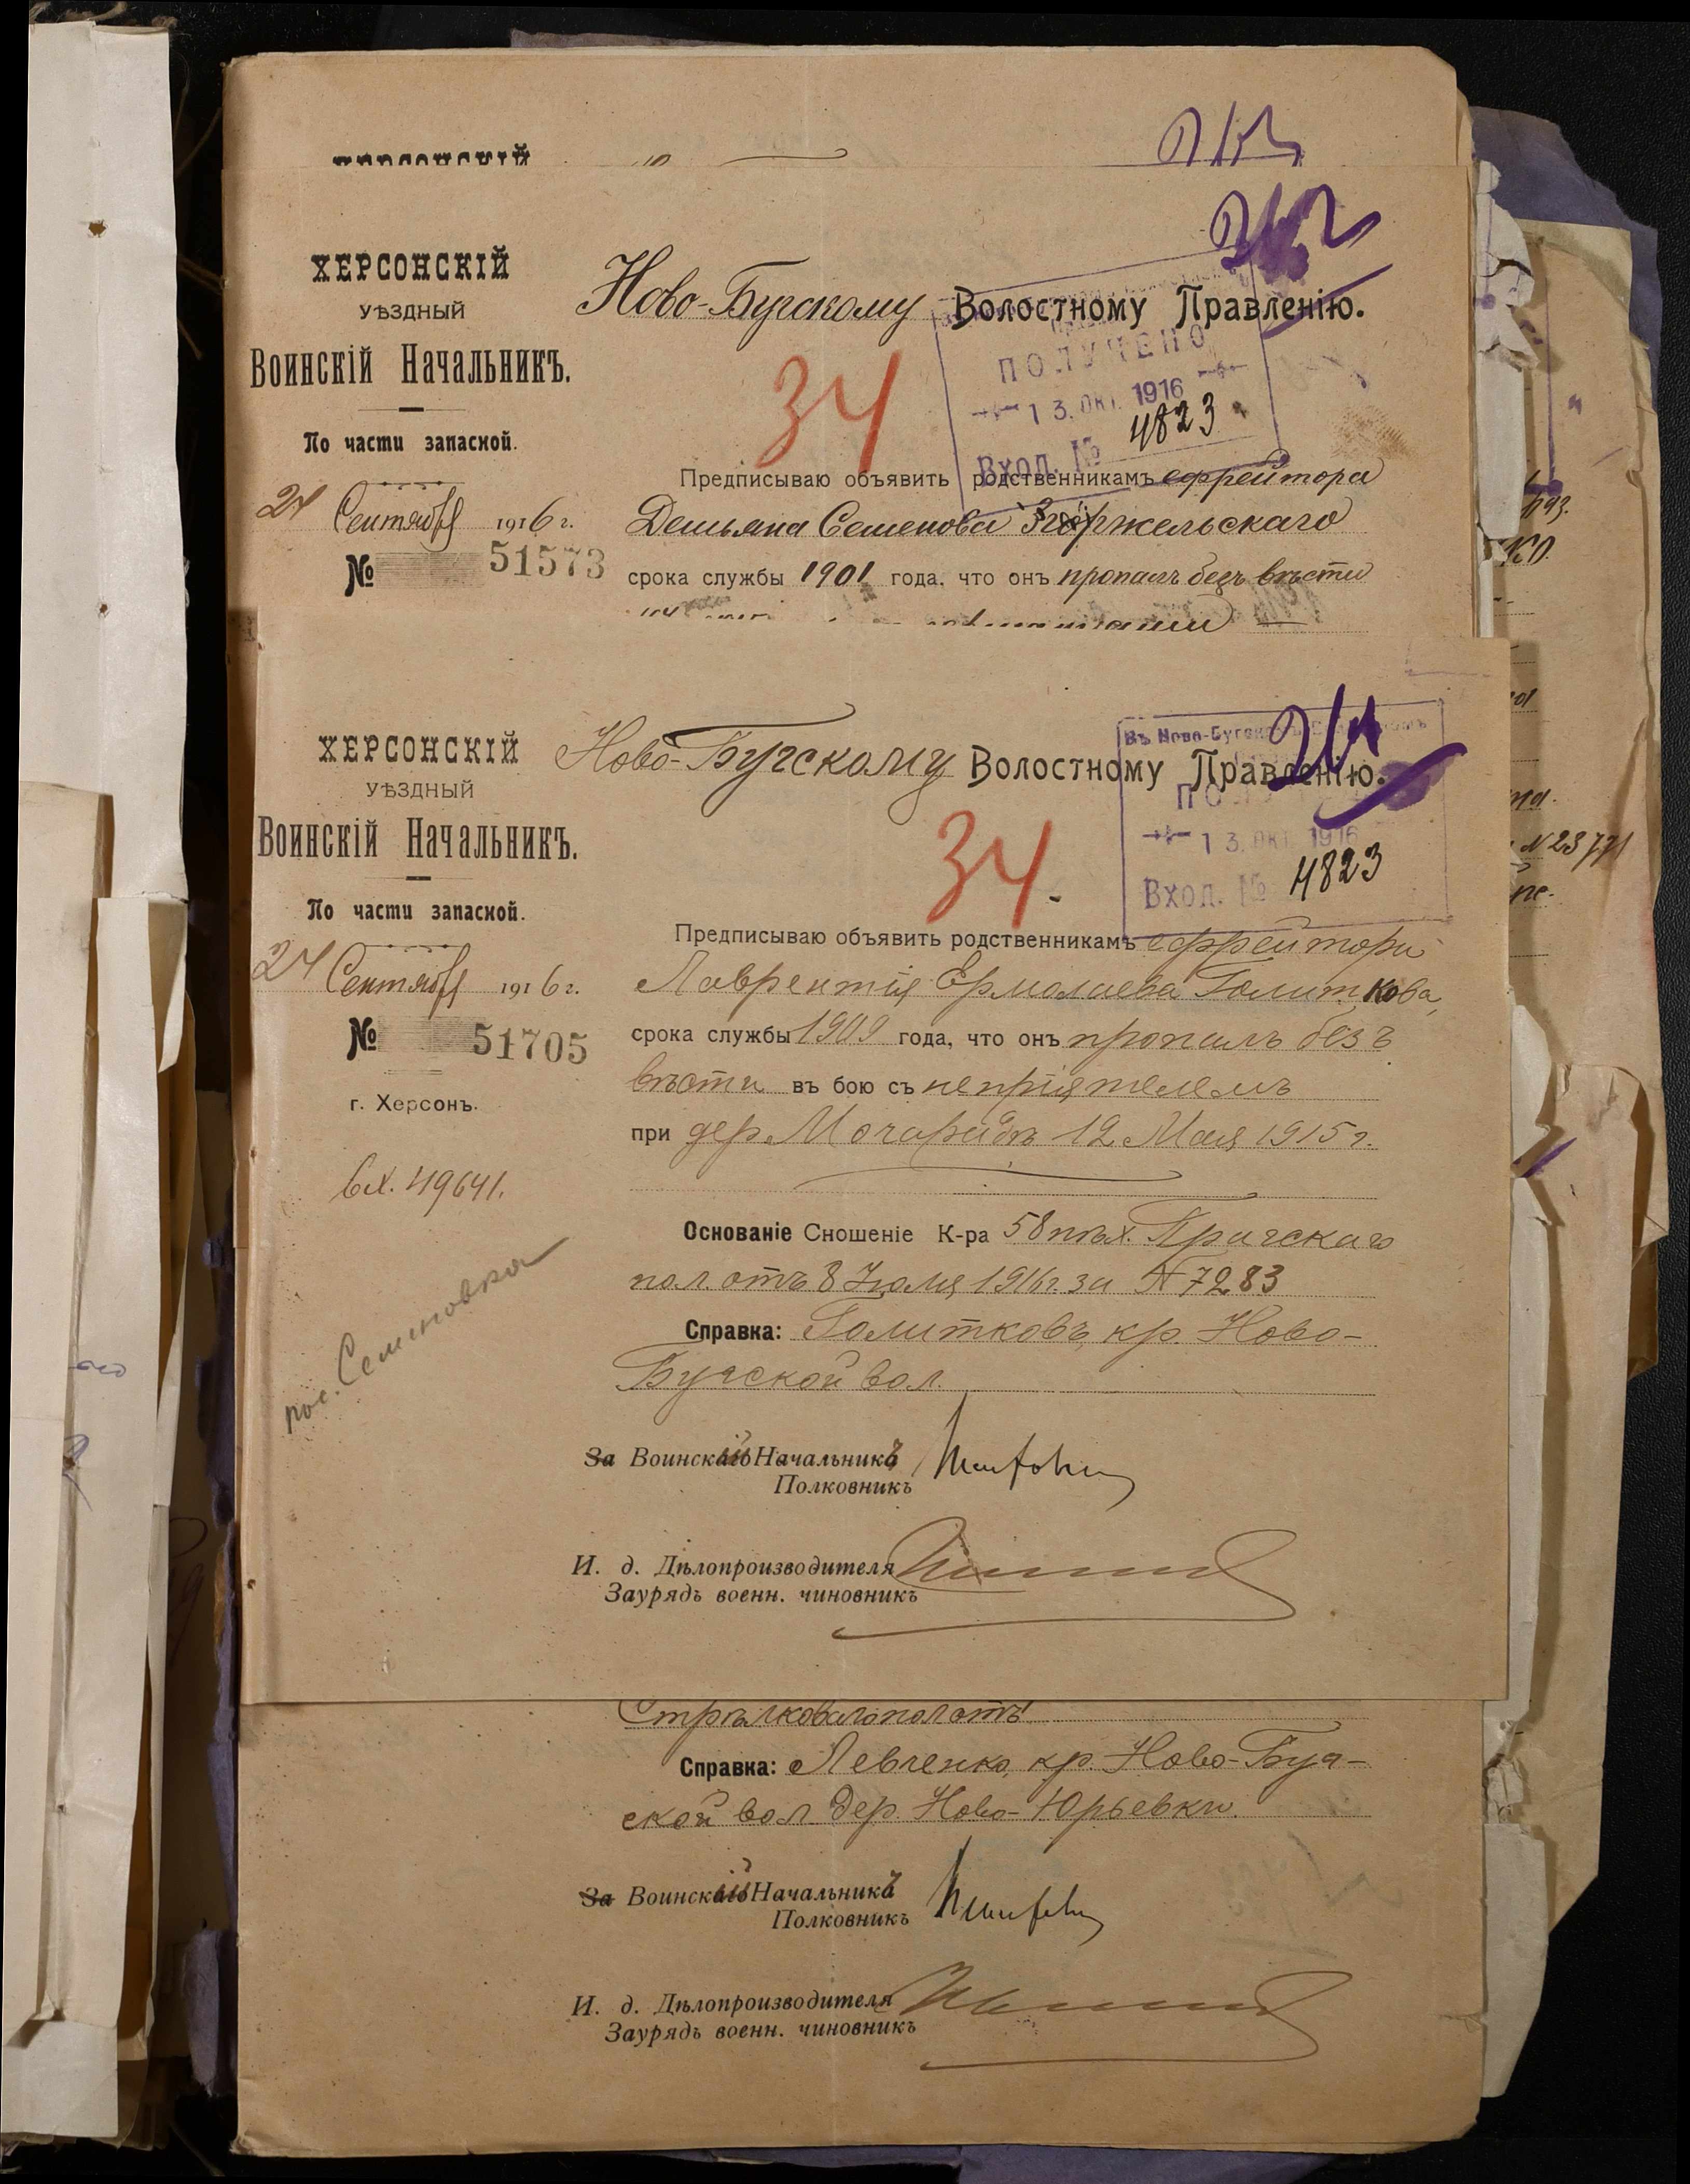 ХЕРСОНСКІЙ
ХЕРСОНСКІЙ
УѢЗДНЫЙ
ВОИНСКІЙ НАЧАЛЬНИКЪ.
По части запасной.
24 Сентября 1916 г.
№ 51573
Ново-Бугскому Волостному Правленію.
34
ПОЛУЧЕНО
13. ОКТ. 1916
Вход. № 4823
Предписываю объявить родственникамъ ефрейтора
Демьяна Семенова
срока службы 1901 года, что онъ пропалъ безъ вѣсти
ХЕРСОНСКІЙ
УѢЗДНЫЙ
ВОИНСКІЙ НАЧАЛЬНИКЪ.
По части запасной.
24 Сентября 1916 г.
№ 51705
г. Херсонъ.
Вх. 49641.
пос. Семеновка
Ново-Бугскому Волостному Правленію.
34.
Въ Ново-Бугском
13. ОКТ. 1916
Вход. № 4823
Предписываю объявить родственникамъ ефрейтора
Лаврентія Ермолаева Голиткова,
срока службы 1909 года, что онъ пропалъ безъ
вѣсти въ бою съ непріятелемъ
при дер. 12 Мая 1915 г.
Основаніе Сношеніе К-ра 58 пѣх. Пражскаго
пол. отъ 8 Іюля 1916 г. за № 7283
Справка: Голитковъ, кр. Ново-
Бугской вол.
За Воинскій Начальникъ
Полковникъ
И. д. Дѣлопроизводителя
Заурядъ военн. чиновникъ
Стрѣлковаго пол. отъ
Справка: Левченко, кр. Ново-Буг-
ской вол. дер. Ново-Юрьевки.
За Воинскій Начальникъ
Полковникъ
И. д. Дѣлопроизводителя
Заурядъ военн. чиновникъ
№ 23771